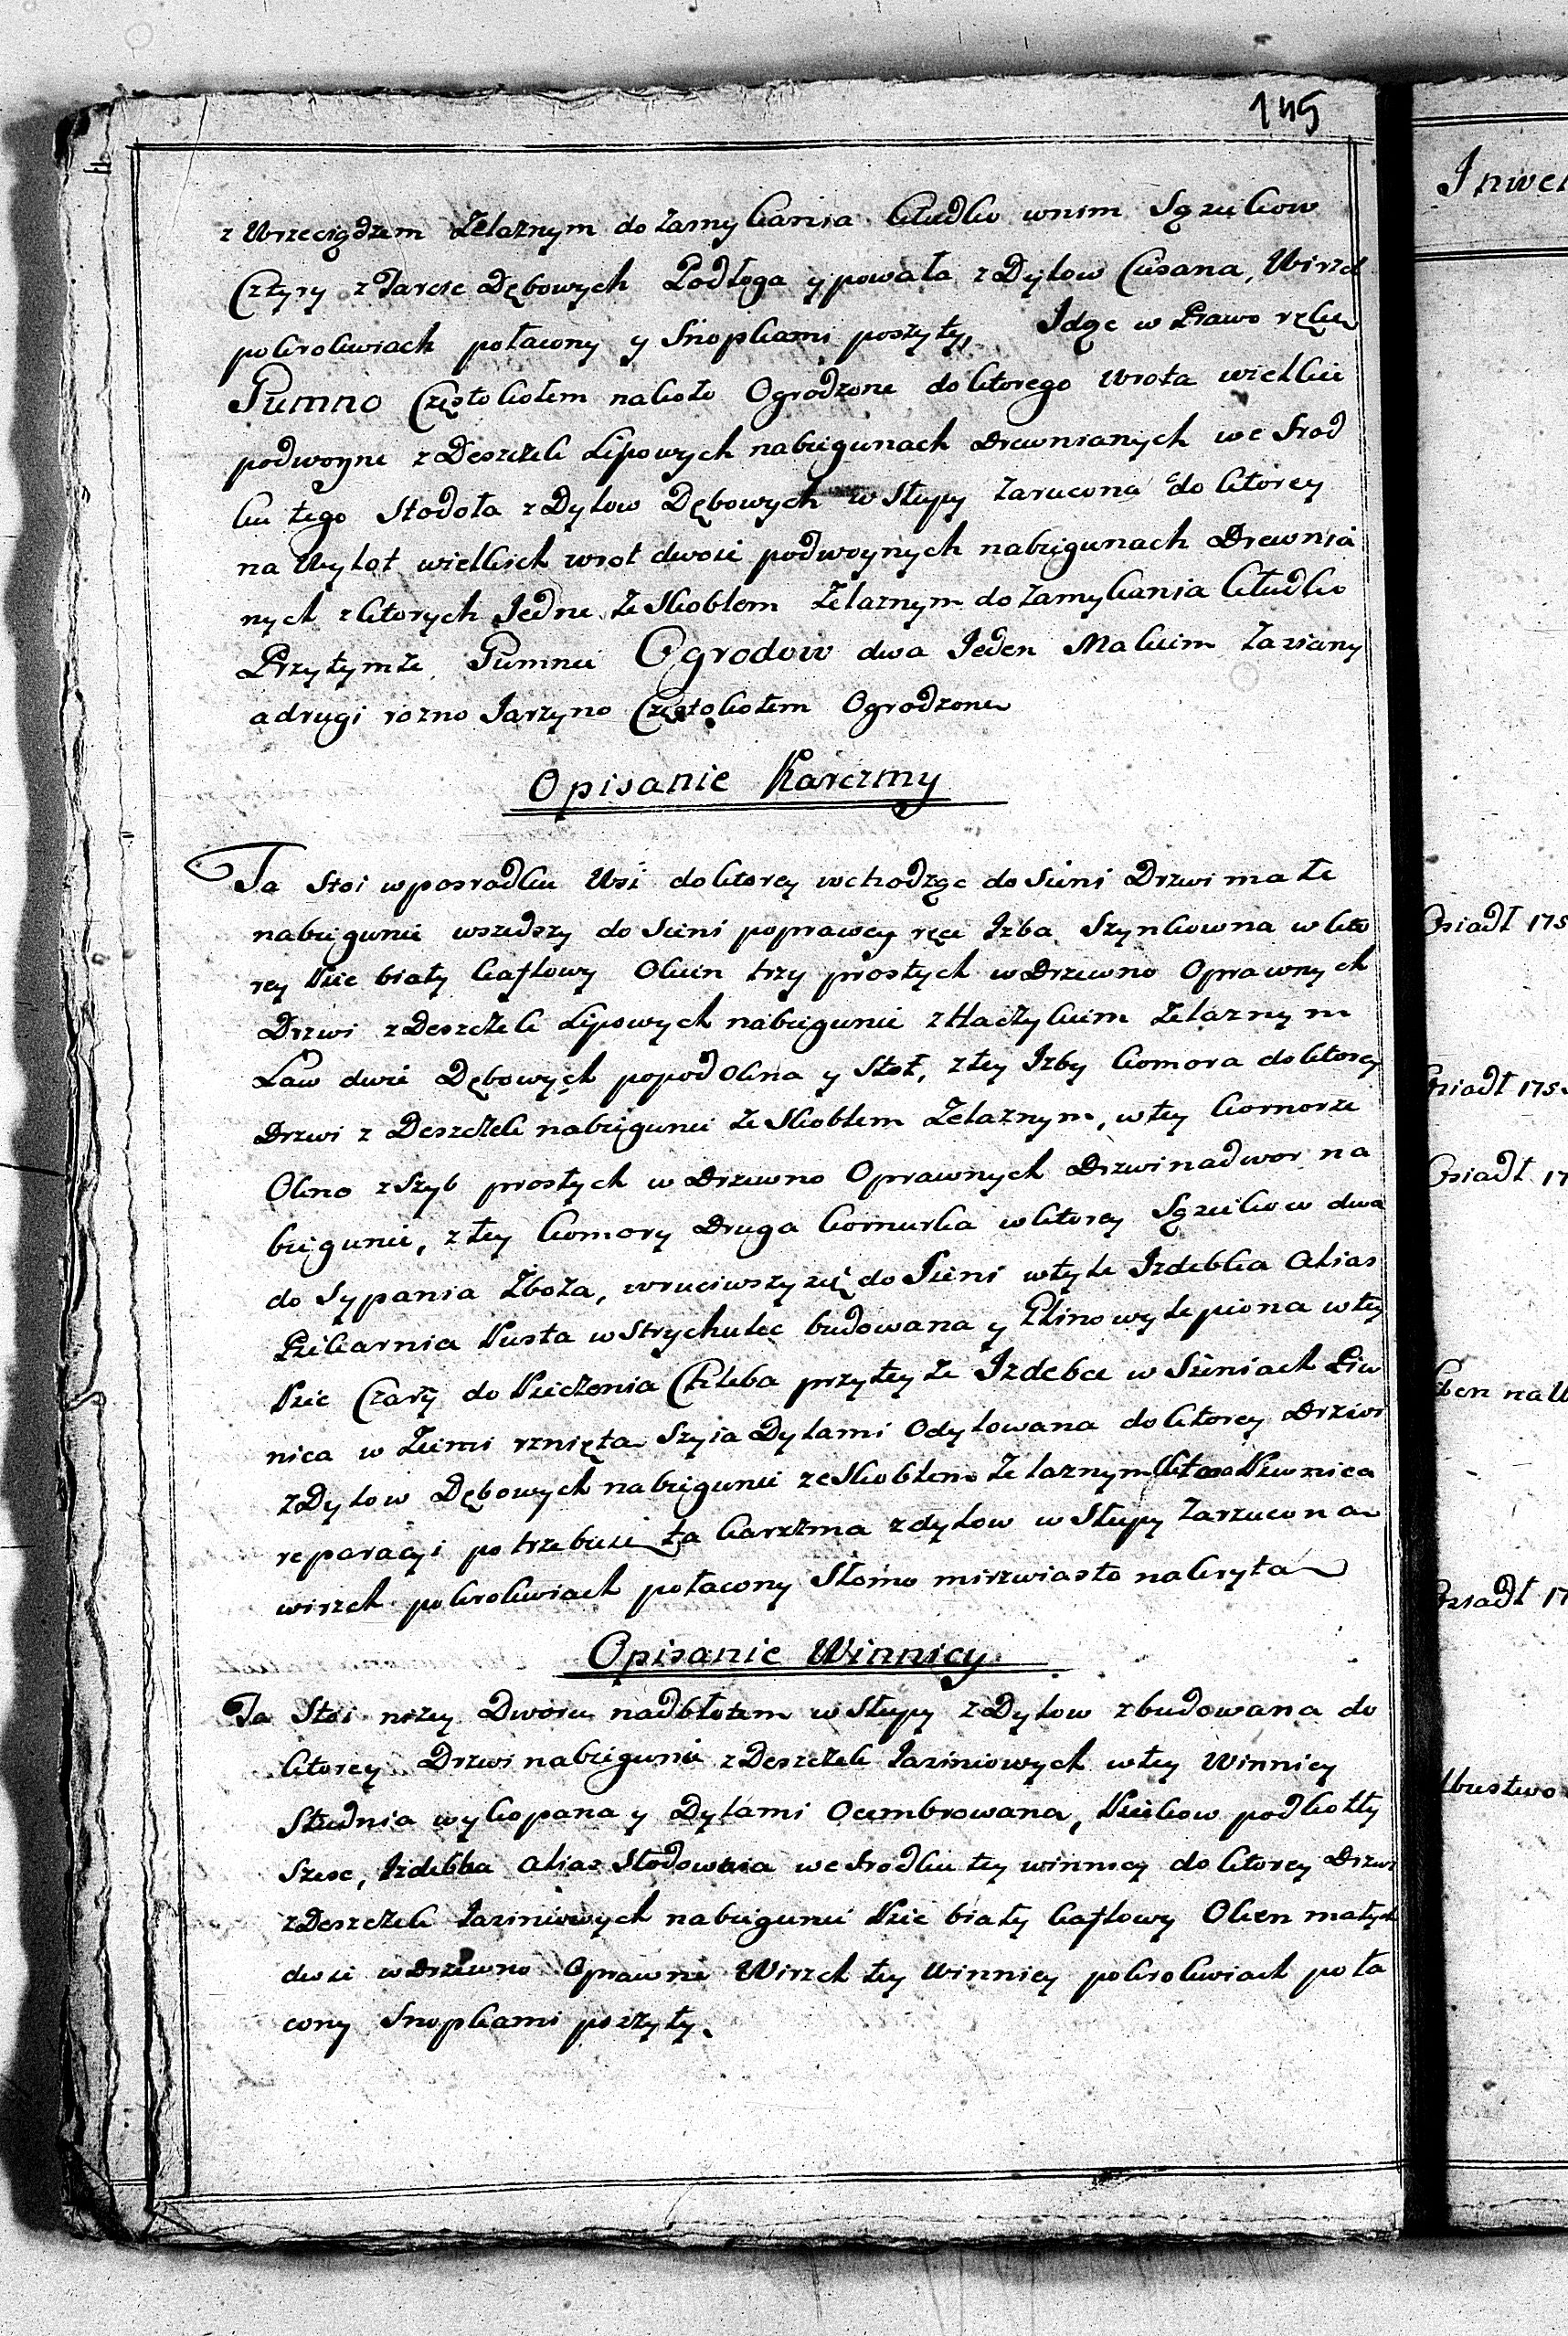 145
z Wrzeciądzem Żelaznym do zamykania Kłudko wnim Sąsiekow
Cztyry z Tarcic Dębowych Podłoga y powała z Dylow Ciosana, Wirzch
po krokwiach połacony y Snopkami poszyty, Idąc w Prawo ręku
Gumno Częstokołem nakoło Ogrodzone do ktorego Wrota wielkie
podwoyne z Deszczek Lipowych nabiegunach Drewnianych we Srod
ku tego Stodoła z Dylow Dębowych w Słupy zarucona do ktorey
na Wylot wielkich wrot dwoie podwoynych nabiegunach Drewnia
nych z ktorych Jedne ze Skoblem Żelaznym do zamykania Kłudko
Przytymże Gumnie Ogrodow dwa Jeden Makiem zasiany
a drugi rozno Jarzyno Częstokołem Ogrodzone
Opisanie Karczmy
Ta Stoi wposrodku Wsi do ktorey wchodząc do Sieni Drzwi małe
nabiegunie wszedszy do Sieni poprawey ręce Izba Szynkowna w kto
rey Piec biały kaflowy Okien trzy prostych w Drzewno Oprawnych
Drzwi z Deszczek Lipowych nabiegunie z Haczykiem żelaznym
Ław dwie Dębowych popod Okna y Stoł, z tey Izby komora do ktorey
Drzwi z Deszczek nabiegunie ze Skoblem Żelaznym, w tey komorze
Okno z Szyb prostych w Drzewno Oprawnych Drzwi nadwor na
biegunie, z tey komory Druga komurka w ktorey Sąsiekow dwa
do Sypania Zboża, wruciwszy się do Sieni wtyle Izdebka alias
Piekarnia Pusta w Strychulec budowana y Glino wylepiona w tey
Piec Czarny do Pieczenia Chleba przy teyże Izdebce w Sieniach Piw
nica w Ziemi rznięta Szyia Dylami Odylowana do ktorey Drzwi
z Dylow Dębowych nabiegunie ze Skoblem Żelaznym Ktora Piwnica
reparacyi potrzebuie ta karczma z dylow w Słupy zarzucona
wirzch po krokwiach połacony Słomo mirzwiasto nakryta
Opisanie Winnicy
Ta Stoi nizey Dworu nadbłotem w Słupy z Dylow zbudowana do
ktorey Drzwi nabiegunie z Deszczek Jasiniowych w tey Winnicy
Studnia wykopana y Dylami Ocembrowana, Piecow pod kotły
Szesc, Izdebka alias Słodownia we srodku tey winnicy do ktorey Drzwi
z Deszczek Jasiniowych nabiegunie Piec biały kaflowy Okien małych
dwie w Drzewno Oprawne Wirzch tey Winnicy po krokwiach poła
cony Snopkami poszyty.
Inwen
Osiadł 175
Osiadł 175
Osiadł 17
Osiadł 17